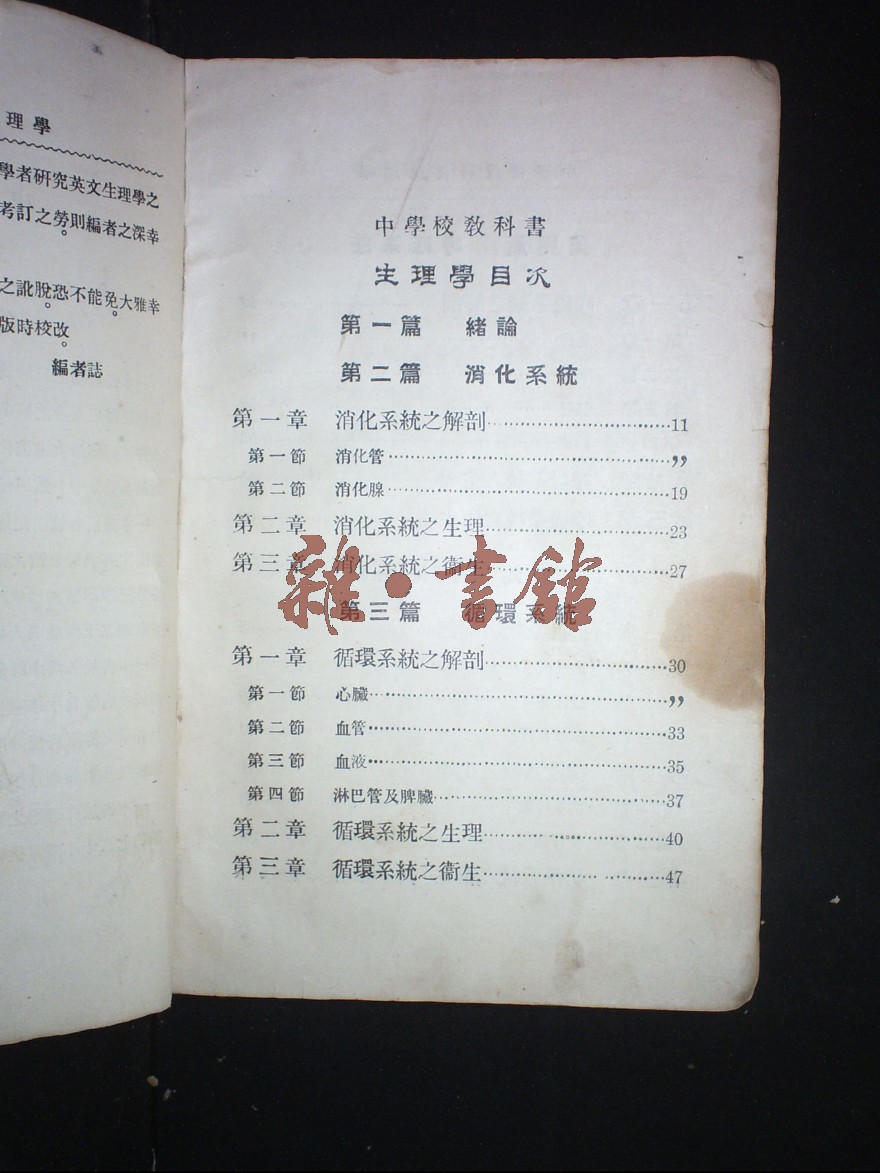 理學
學者研究英文生理學之
考訂之勞。則編者之深幸
之訛脫。恐不能免。大雅幸
版時校改。
編者誌
中學校教科書
生理學目次
第一篇 緒論
第二篇 消化系統
第一章 消化系統之解剖 11
第一節 消化管 ,,
第二節 消化腺 19
第二章 消化系統之生理 23
第三章 消化系統之衞生 27
雜·書館
第三篇 循環系統
第一章 循環系統之解剖 30
第一節 心臟 ,,
第二節 血管 33
第三節 血液 35
第四節 淋巴管及脾臟 37
第二章 循環系統之生理 40
第三章 循環系統之衞生 47